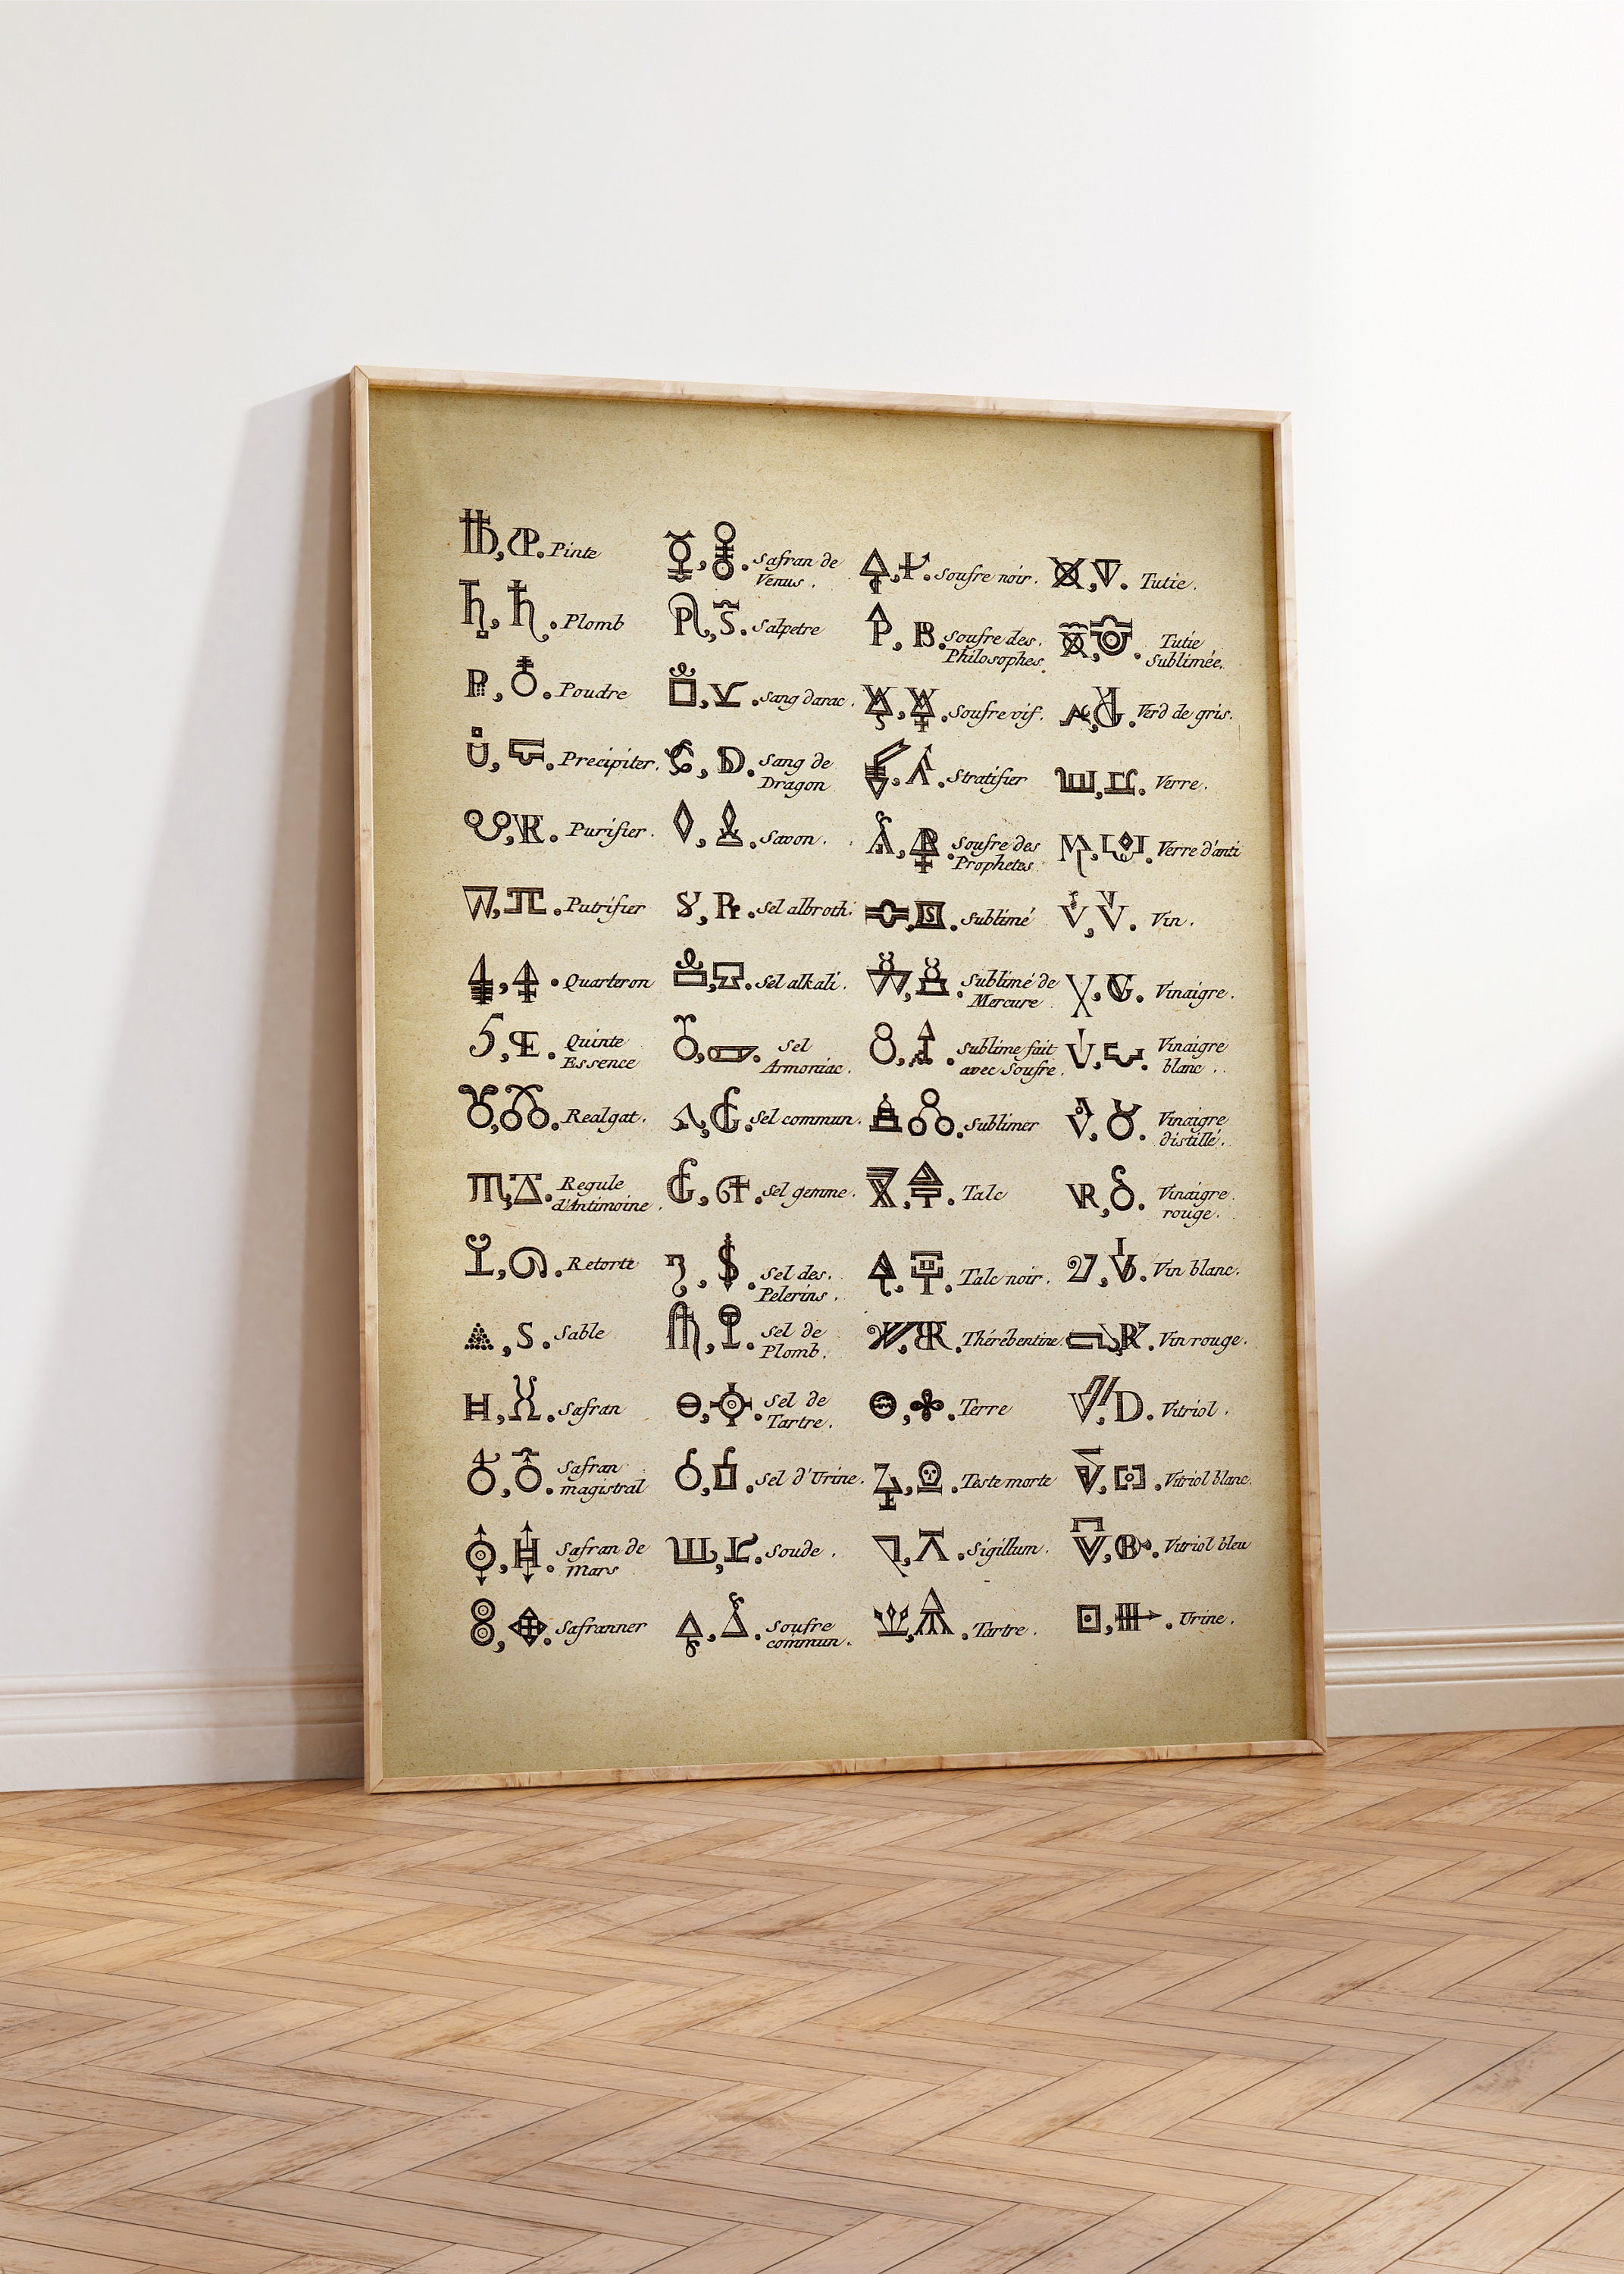 Pinte
Plomb
Poudre
Precipiter.
Purifier.
Putrifier
Quarteron
Quinte
Essence
Realgat.
Regule
d'Antimoine.
Retorte
Sable
Safran
Safran
magistral
Safran de
Mars
Safranner
Safran de
Venus.
Salpetre
Sang darac.
Sang de
Dragon
Savon.
Sel albroth.
Sel alkali.
Sel
Armoniac.
Sel commun.
Sel gemme.
Sel des
Pelerins.
Sel de
Plomb.
Sel de
Tartre.
Sel d'Urine.
Soude.
Soufre
commun.
Soufre noir.
Soufre des
Philosophes.
Soufre vif.
Stratifier
Soufre des
Prophetes
Sublimé
Sublimé de
Mercure
Sublimé fait
avec Soufre.
Sublimer
Talc
Talc noir.
Thérébentine.
Terre
Teste morte
Sigillum.
Tartre.
Tutie.
Tutie
Sublimée.
Verd de gris.
Verre.
Verre d'anti
Vin.
Vinaigre.
Vinaigre
blanc.
Vinaigre
distillé.
Vinaigre
rouge.
Vin blanc.
Vin rouge.
Vitriol.
Vitriol blanc.
Vitriol bleu
Urine.